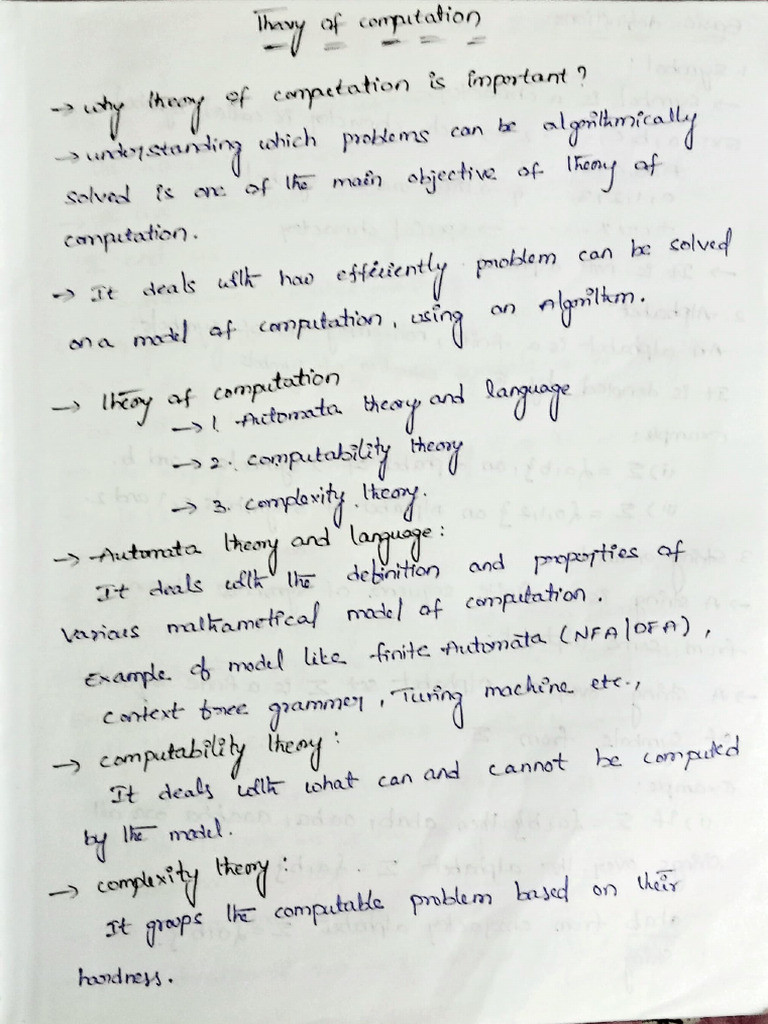 Theory of computation
→ why theory of computation is important?
→ understanding which problems can be algorithmically
solved is one of the main objective of theory of
computation.
→ It deals with how efficiently problem can be solved
on a model of computation, using an Algorithm.
→ theory of computation
→ 1. Automata theory and language
→ 2. computability theory
→ 3. complexity theory.
→ Automata theory and language:
It deals with the definition and properties of
various mathametical model of computation.
Example of model like finite Automata (NFA|DFA),
context free grammer, Turing machine etc.,
→ computability theory:
It deals with what can and cannot be computed
by the model.
→ complexity theory:
It groups the computable problem based on their
hardness.